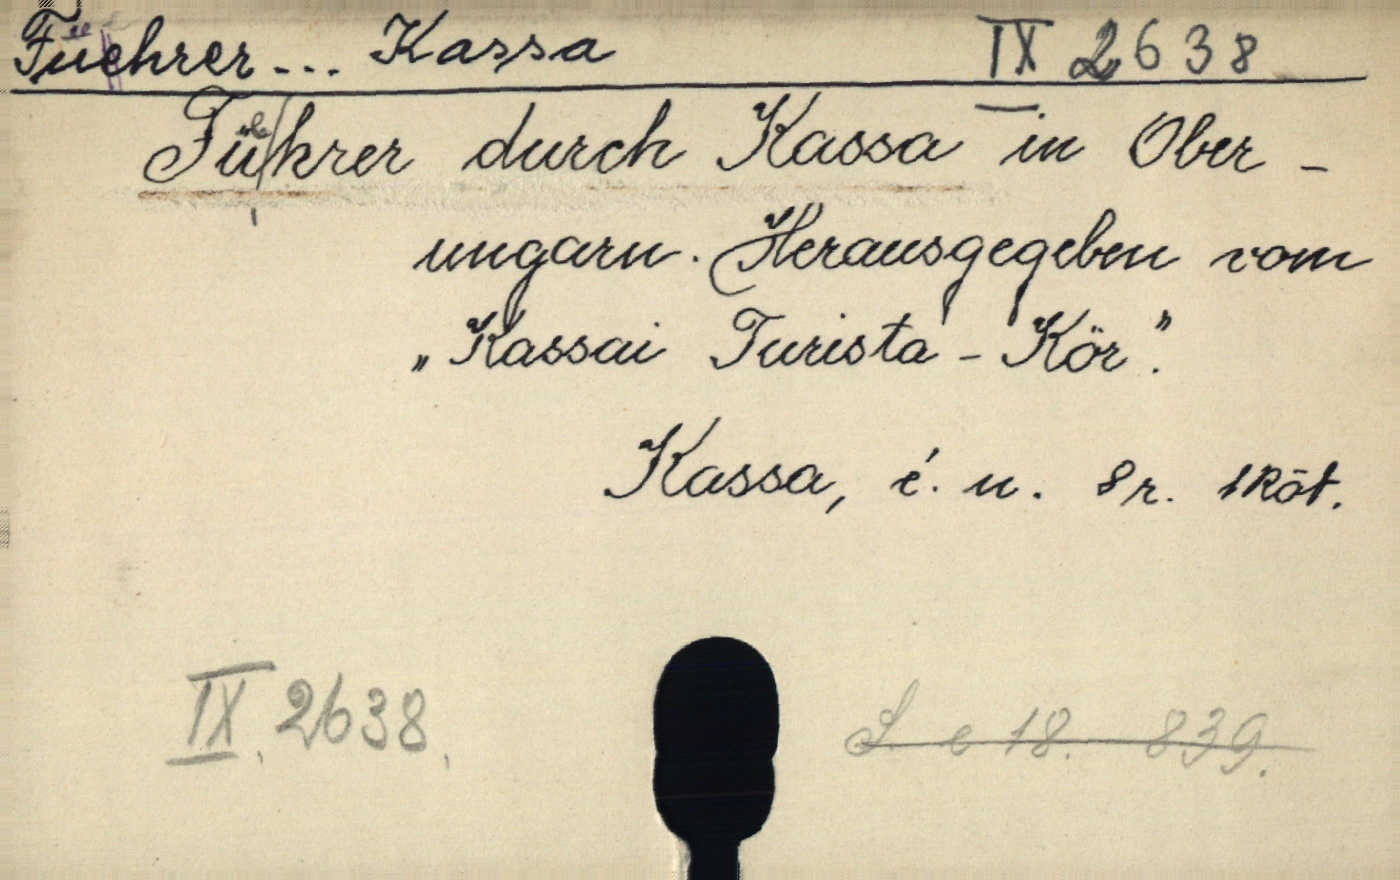 Fuehrer... Kassa IX 2638
Führer durch Kassa in Ober-
ungarn. Herausgegeben vom
„Kassai Turista-Kör”.
Kassa, é. n. 8r. 1 köt.
IX. 2638.
L e 18. 839.